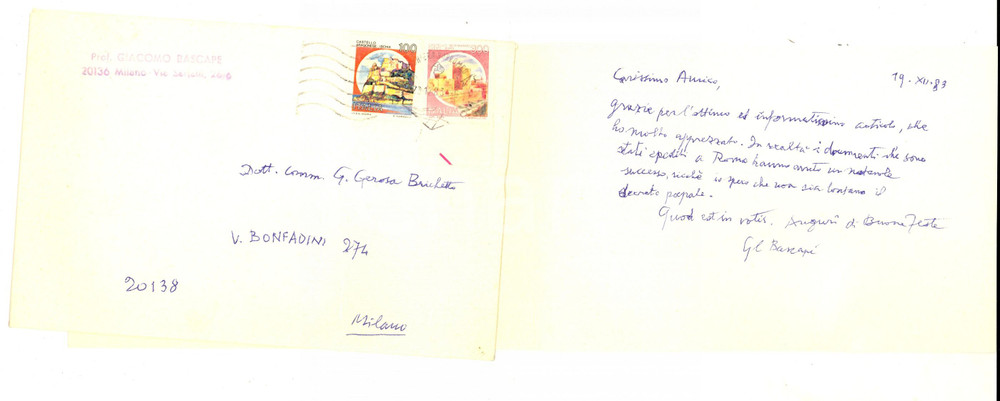 Prof. GIACOMO BASCAPE
20136 Milano - Via
CASTELLO
100
200
Dott. Comm. G. Gerosa Brichetto
V. BONFADINI 274
20138
Milano
Carissimo Amico,
19 - XII - 83
grazie per l'ottimo ed informatissimo articolo, che
ho molto apprezzato. In realtà i documenti che sono
stati spediti a Roma hanno avuto un notevole
successo, sicché io spero che non sia lontano il
decreto papale.
Quod est in votis. Auguri di Buone Feste
GC Bascapé